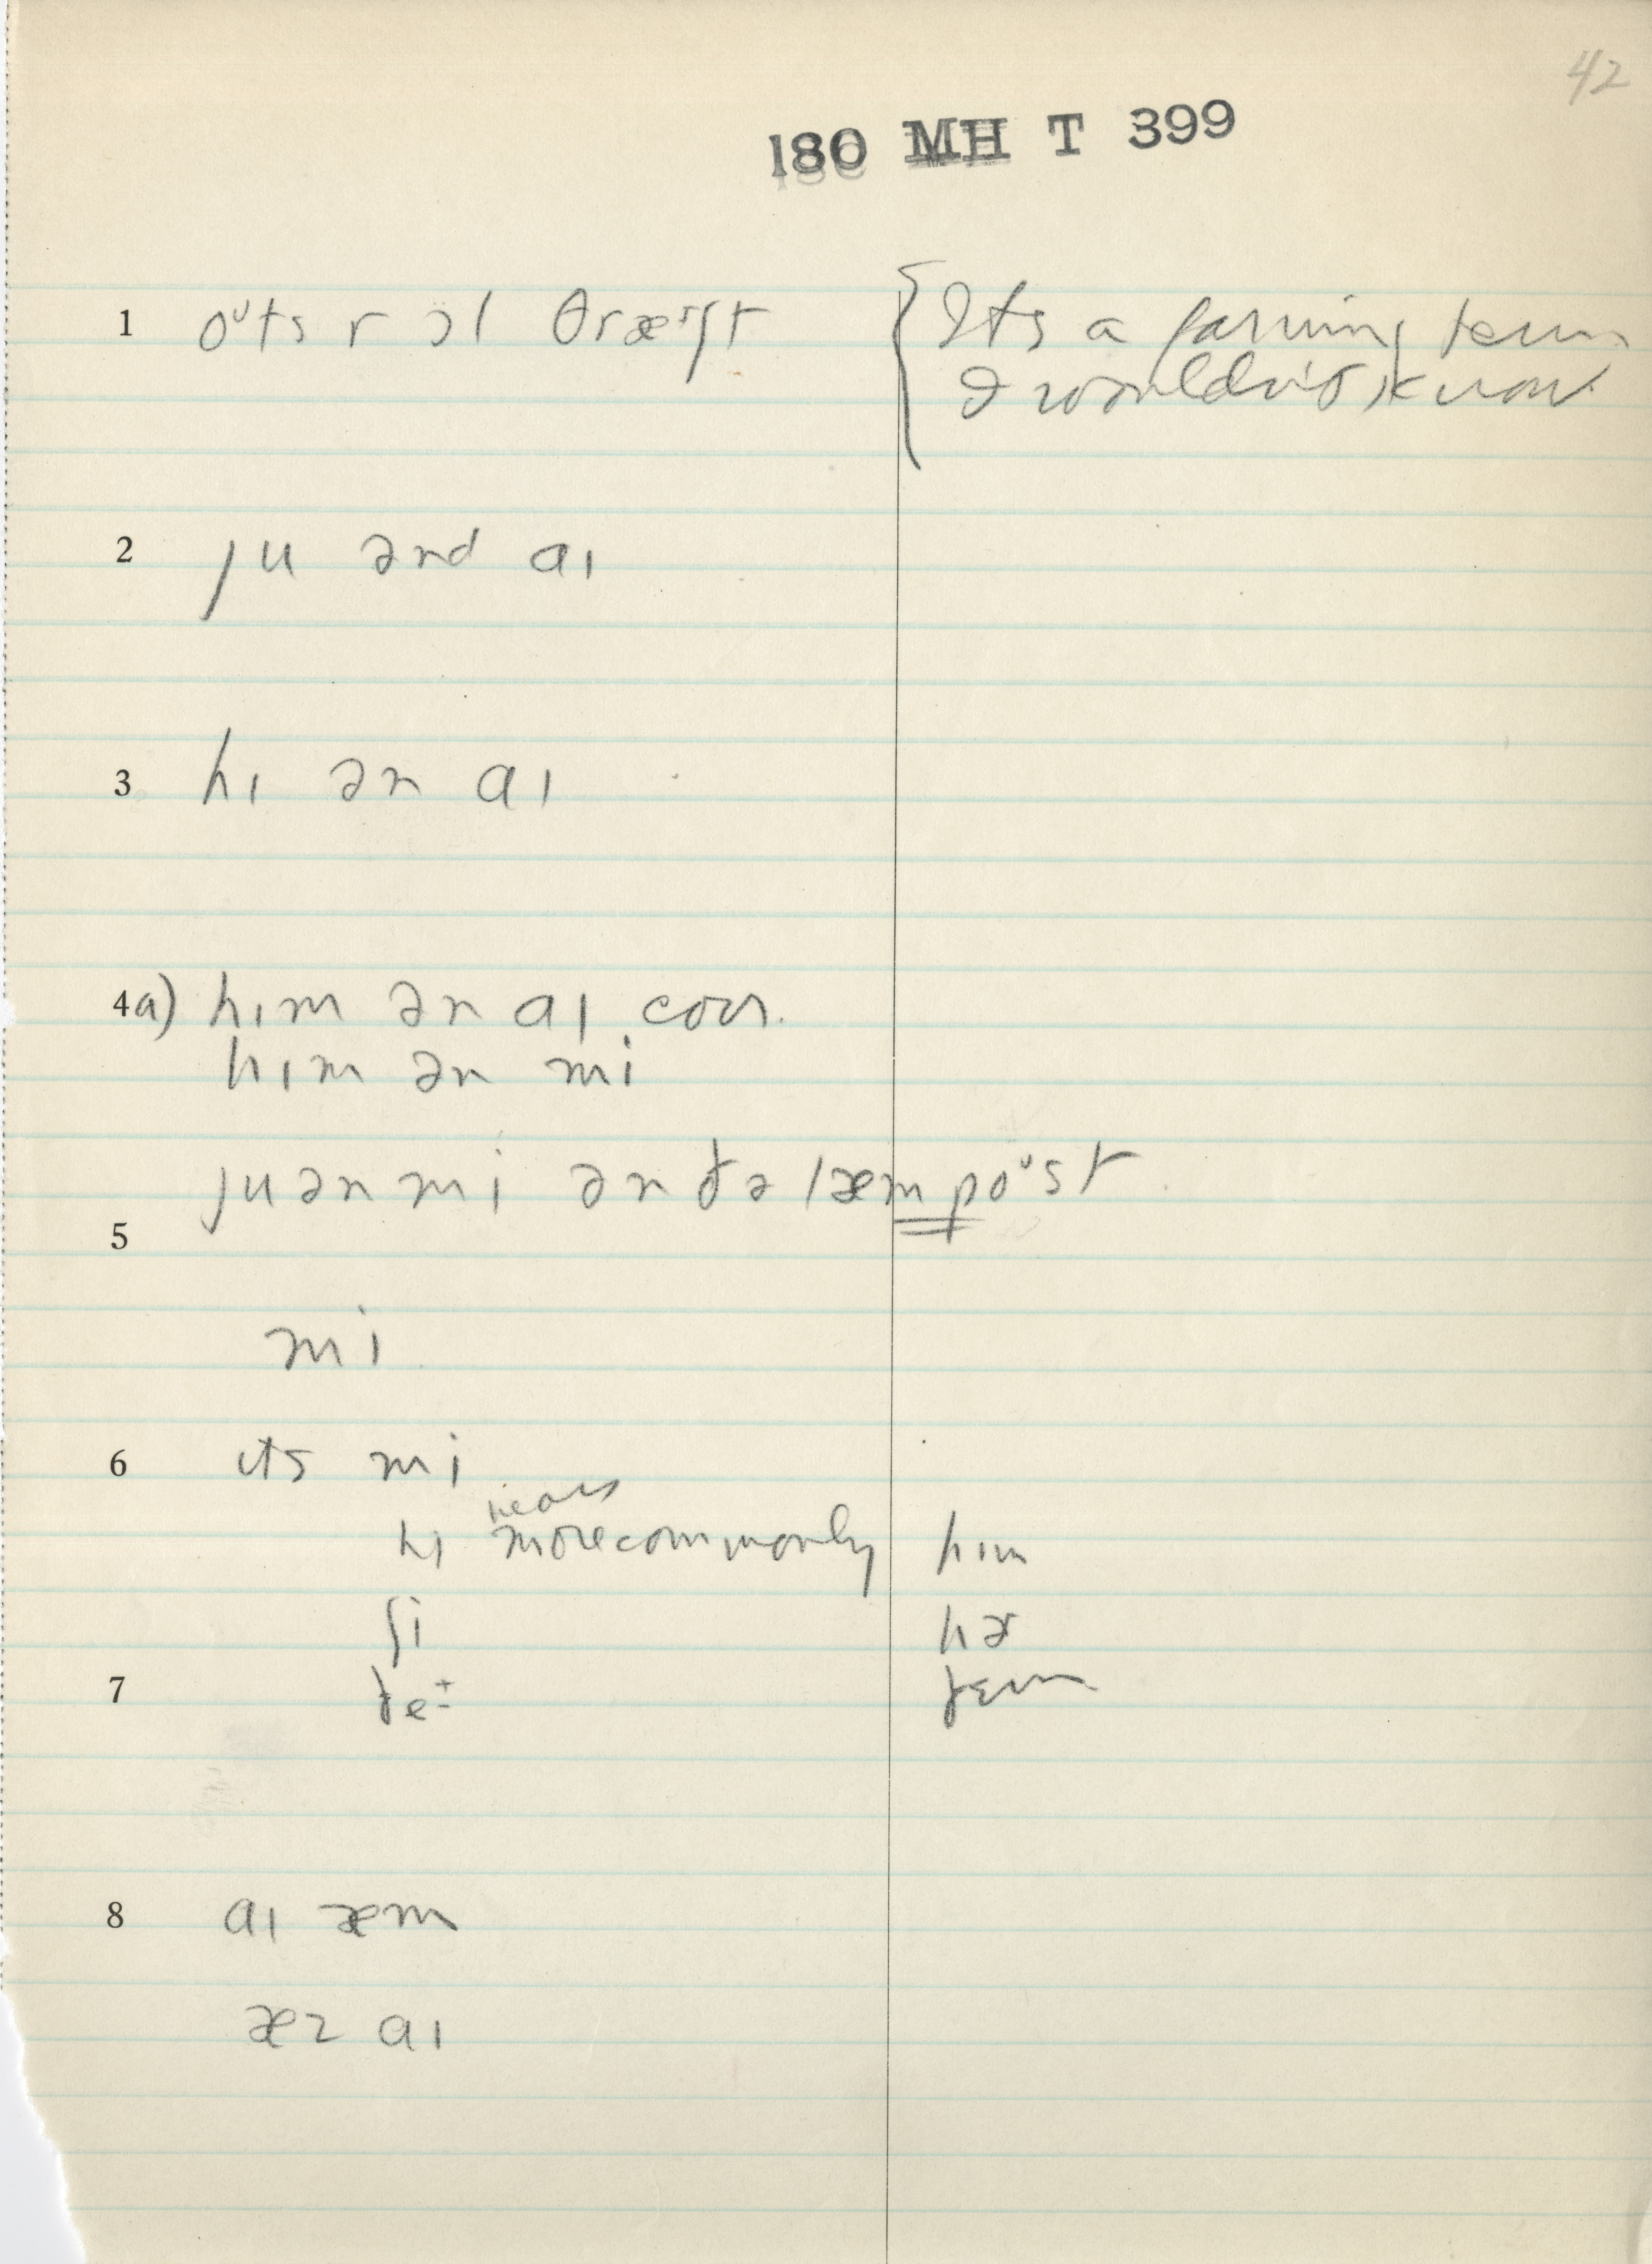 42
180 MH T 399
1 oᶷts r ɔl θræᶦʃt {Its a farming term
I wouldn't know
2 ju ənd aɪ
3 hɪ ən aɪ
4a) hɪm ən aɪ corr.
hɪm ən mi
ju ən mi ən ðə læmpoᶷst
5
mi
6 ɪts mi
hears
hɪ more commonly hɪm
ʃi hɚ
7 ðe ðɛm
8 aɪ æm
æz aɪ